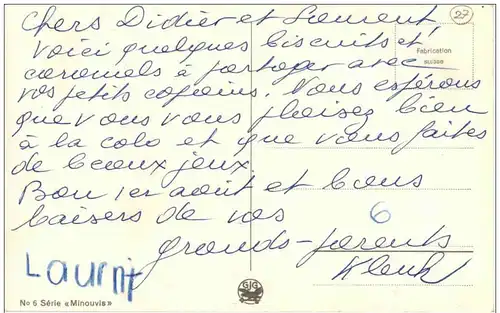 Chers Didier et Laurent,
27
voici quelques biscuits et
Fabrication
suisse
caramels à partager avec
vos petits copains. Nous espérons
que vous vous plaisez bien
à la colo et que vous faites
de beaux jeux.
Bon 1er août et bons
baisers de vos
6
grands-parents
GJG
No 6 Série «Minouvis»